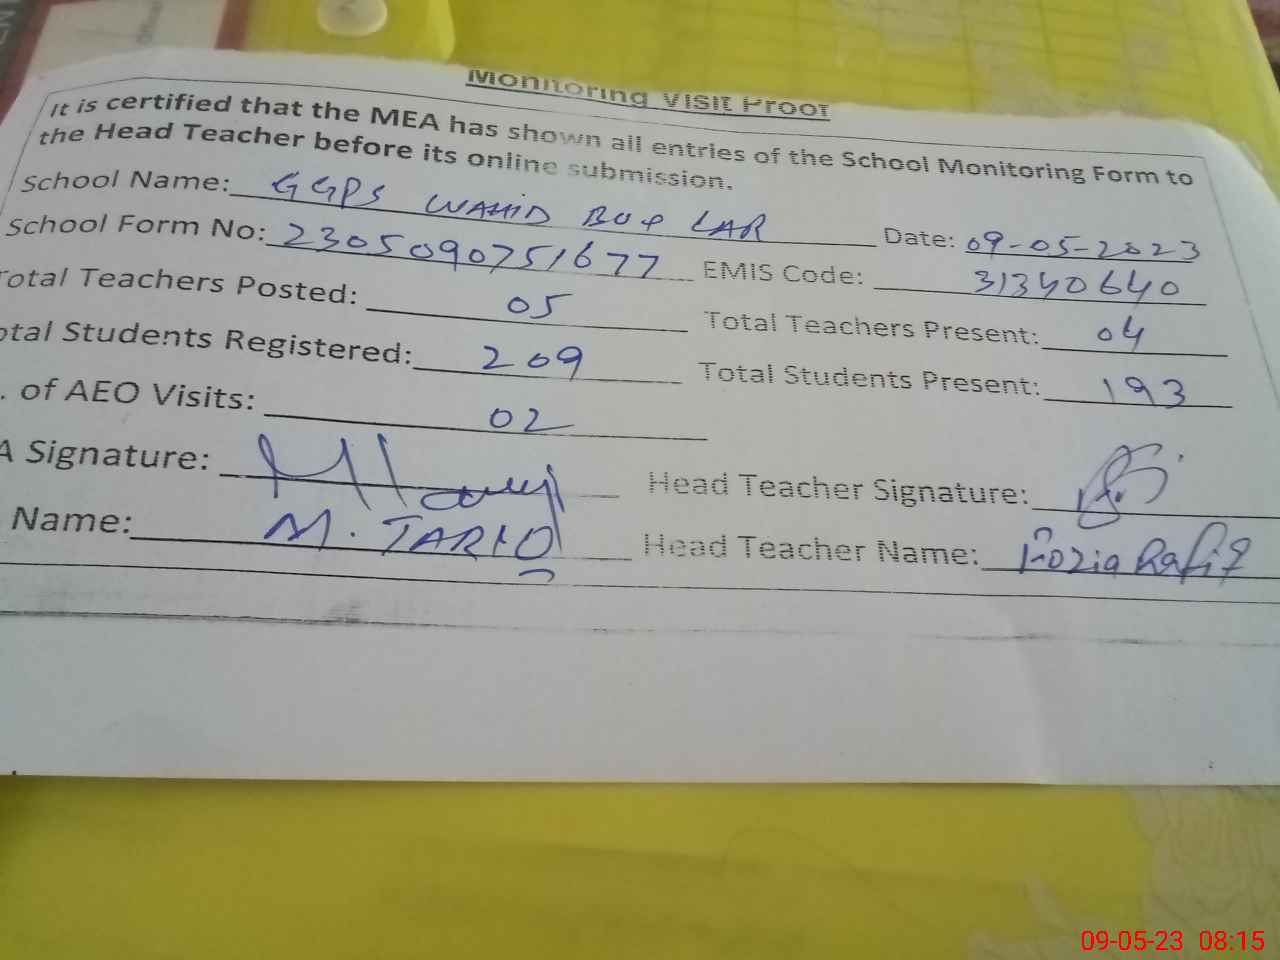 Monitoring Visit Proof
It is certified that the MEA has shown all entries of the School Monitoring Form to
the Head Teacher before its online submission.
School Name: GGPS WAHID BUX LAR Date: 09-05-2023
School Form No: 2305090751677 EMIS Code: 31340640
Total Teachers Posted: 05 Total Teachers Present: 04
otal Students Registered: 209 Total Students Present: 193
. of AEO Visits: 02
A Signature: Head Teacher Signature:
Name: M. TARIQ Head Teacher Name: Fozia Rafiq
09-05-23 08:15